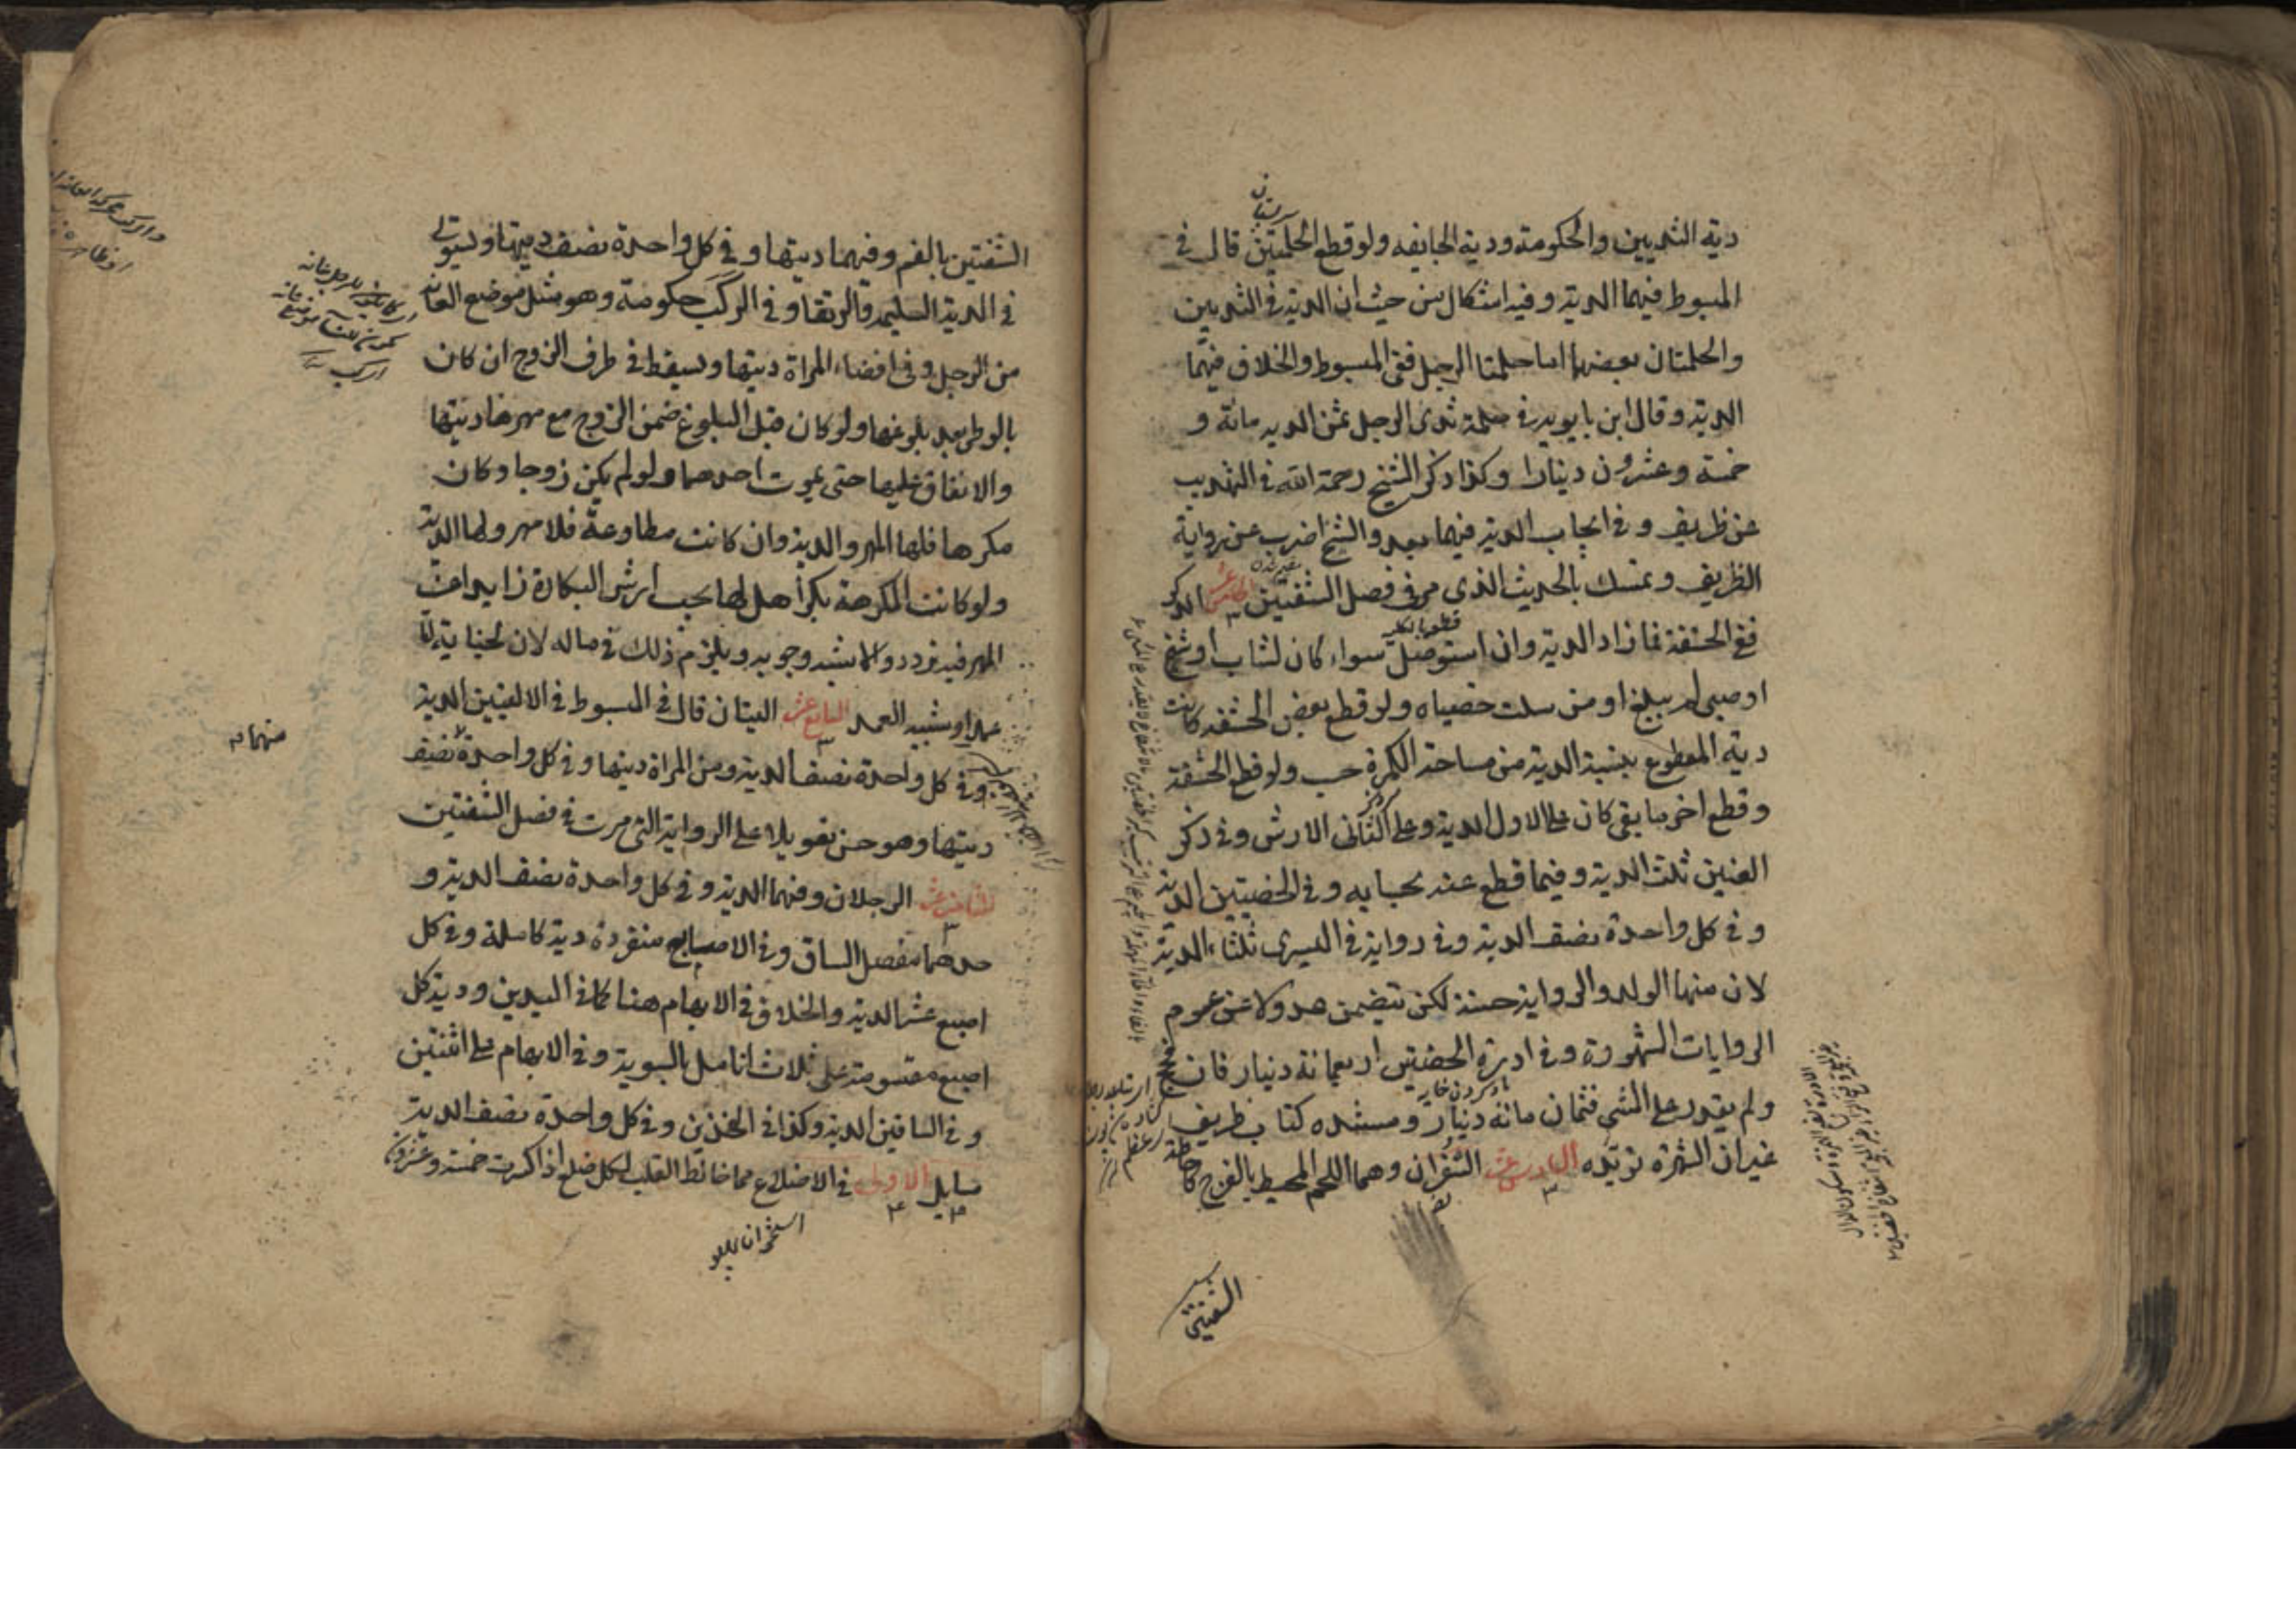 دية الثديين والحكومة ودية الجايفه ولو قطع الحلمتين قال في
المبسوط فيهما الدية وفيه اشكال من حيث ان الدية في الثديين
والحلمتان بعضهما اما حلمتا الرجل ففي المبسوط والخلاف فيهما
الدية وقال ابن بابويه في حلمة ثدى الرجل ثمن الديه مائة و
خمسة وعشرون دينارا وكذا ذكر الشيخ رحمة الله في التهذيب
عن ظريف و في ايجاب الدية فيهما بعد والشيخ اضرب عن رواية
الظريف وتمسك بالحديث الذى مر في فصل الشفتين الخامس عشر الذكر
ففي الحشفة فما زاد الدية وان استوصل سواء كان لشاب او شيخ
او صبي لم يبلغ او من سلت خصياه ولو قطع بعض الحشفه كانت
دية المقطوع بنسبة الدية من مساحة الكمرة حسب ولو قطع الحشفة
وقطع اخر ما بقي كان على الاول الدية وعلى الثانى الارش وفي ذكر
العنين ثلث الدية وفيما قطع عنه بحسابه وفي الخصيتين الدية
وفي كل واحدة نصف الدية وفي رواية في اليسرى ثلثاء الدية
لان منها الولد والرواية حسنة لكن تتضمن عدولا عن عموم
الروايات المشهورة وفي ادرة الخصيتين اربعمائة دينار فان فحج
ولم يقدر على المشي فثمان مائة دينار ومستنده كتاب ظريف
غير ان الشهرة تويده السادس عشر الشفران وهما اللحم المحيط بالفرج كاحاطة
الشفتين
الشفتين بالفم وفيهما ديتها وفي كل واحدة نصف ديتها وتستوي
في الدية السليمة والرتقا وفي الركب حكومة وهو مثل موضع العانة
من الرجل وفي افضاء المراة ديتها وتسقط في طرف الزوج ان كان
بالوطي بعد بلوغها ولو كان قبل البلوغ ضمن الزوج مع مهرها ديتها
والانفاق عليها حتى يموت احدهما ولو لم يكن زوجا وكان
مكرها فلها المهر والدية وان كانت مطاوعة فلا مهر ولها الدية
ولو كانت المكرهة بكرا هل لها يجب ارش البكارة زايدا عن
المهر فيه تردد والاشبه وجوبه ويلزم ذلك في ماله لان الجناية اما
عمد او شبيه العمد السابع عشر اليتان قال في المبسوط في الاليتين الدية
وفي كل واحدة نصف الدية ومن المراة ديتها وفي كل واحدة نصف
منهما
ديتها وهو حسن تعويلا على الرواية التى مرت في فصل الشفتين
الثامن عشر الرجلان وفيهما الدية وفي كل واحدة نصف الدية و
حدهما مفصل الساق وفي الاصابع منفردة دية كاملة وفي كل
اصبع عشر الدية والخلاف في الابهام هنا كما في اليدين ودية كل
اصبع مقسومة على ثلاث انامل بالسوية وفي الابهام على اثنتين
وفي الساقين الدية وكذا في الفخذين وفي كل واحدة نصف الدية
مسايل الاولى في الاضلاع مما خالط القلب لكل ضلع اذا كسرت خمسة وعشرون
استخوان پهلو